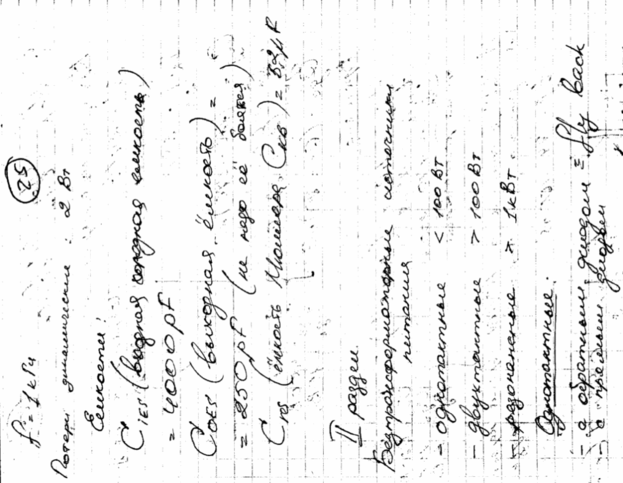 25
f = 1 кГц
Потери динамические : 2 Вт
Емкости:
C IES (входная емкость)
= 4000 pF
C OES (выходная ёмкость) =
= 250 pF (не надо её бояться)
C res (ёмкость Миллера Скб) =
II раздел
Безтрансформаторные источники
питания
- однотактные < 100 Вт
- двухтактные > 100 Вт
- резонансные > 1 кВт.
Однотактные:
- с обратным диодом = fly back
- с прямым диодом